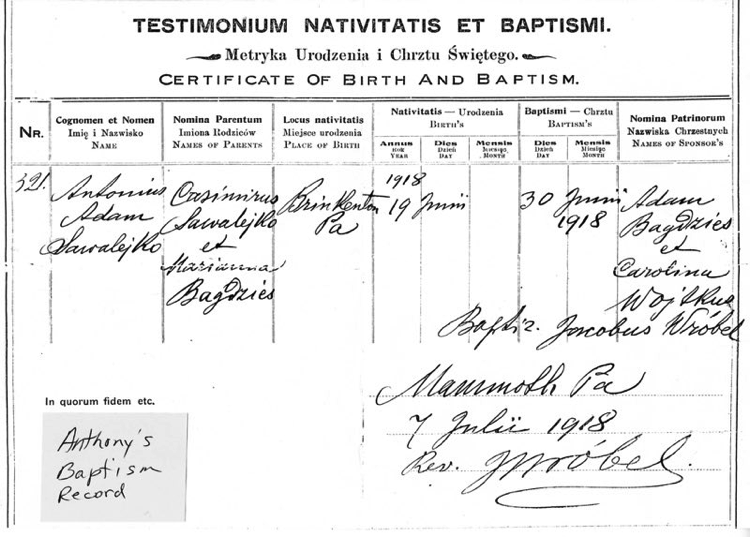 TESTIMONIUM NATIVITATIS ET BAPTISMI.
Metryka Urodzenia i Chrztu Świętego.
CERTIFICATE OF BIRTH AND BAPTISM.
NR.
Cognomen et Nomen
Imię i Nazwisko
NAME
Nomina Parentum
Imiona Rodziców
NAMES OF PARENTS
Locus nativitatis
Miejsce urodzenia
PLACE OF BIRTH
Nativitatis — Urodzenia
BIRTH'S
Annus
ROK
YEAR
Dies
Dzień
DAY
Mensis
Miesiąc
MONTH
Baptismi — Chrztu
BAPTISM'S
Dies
Dzień
DAY
Mensis
Miesiąc
MONTH
Nomina Patrinorum
Nazwiska Chrzestnych
NAMES OF SPONSOR'S
321.
Antonius
Adam
Sawalejko
Casimirus
Sawalejko
et
Marianna
Bagdzies
Brinkerton
Pa
1918
19 Junii
30 Junii
1918
Adam
Bagdzies
et
Carolina
Wojtkus
Baptiz. Jacobus Wróbel
Mammoth Pa
7 Julii 1918
Rev. JWróbel.
In quorum fidem etc.
Anthony's
Baptism
Record